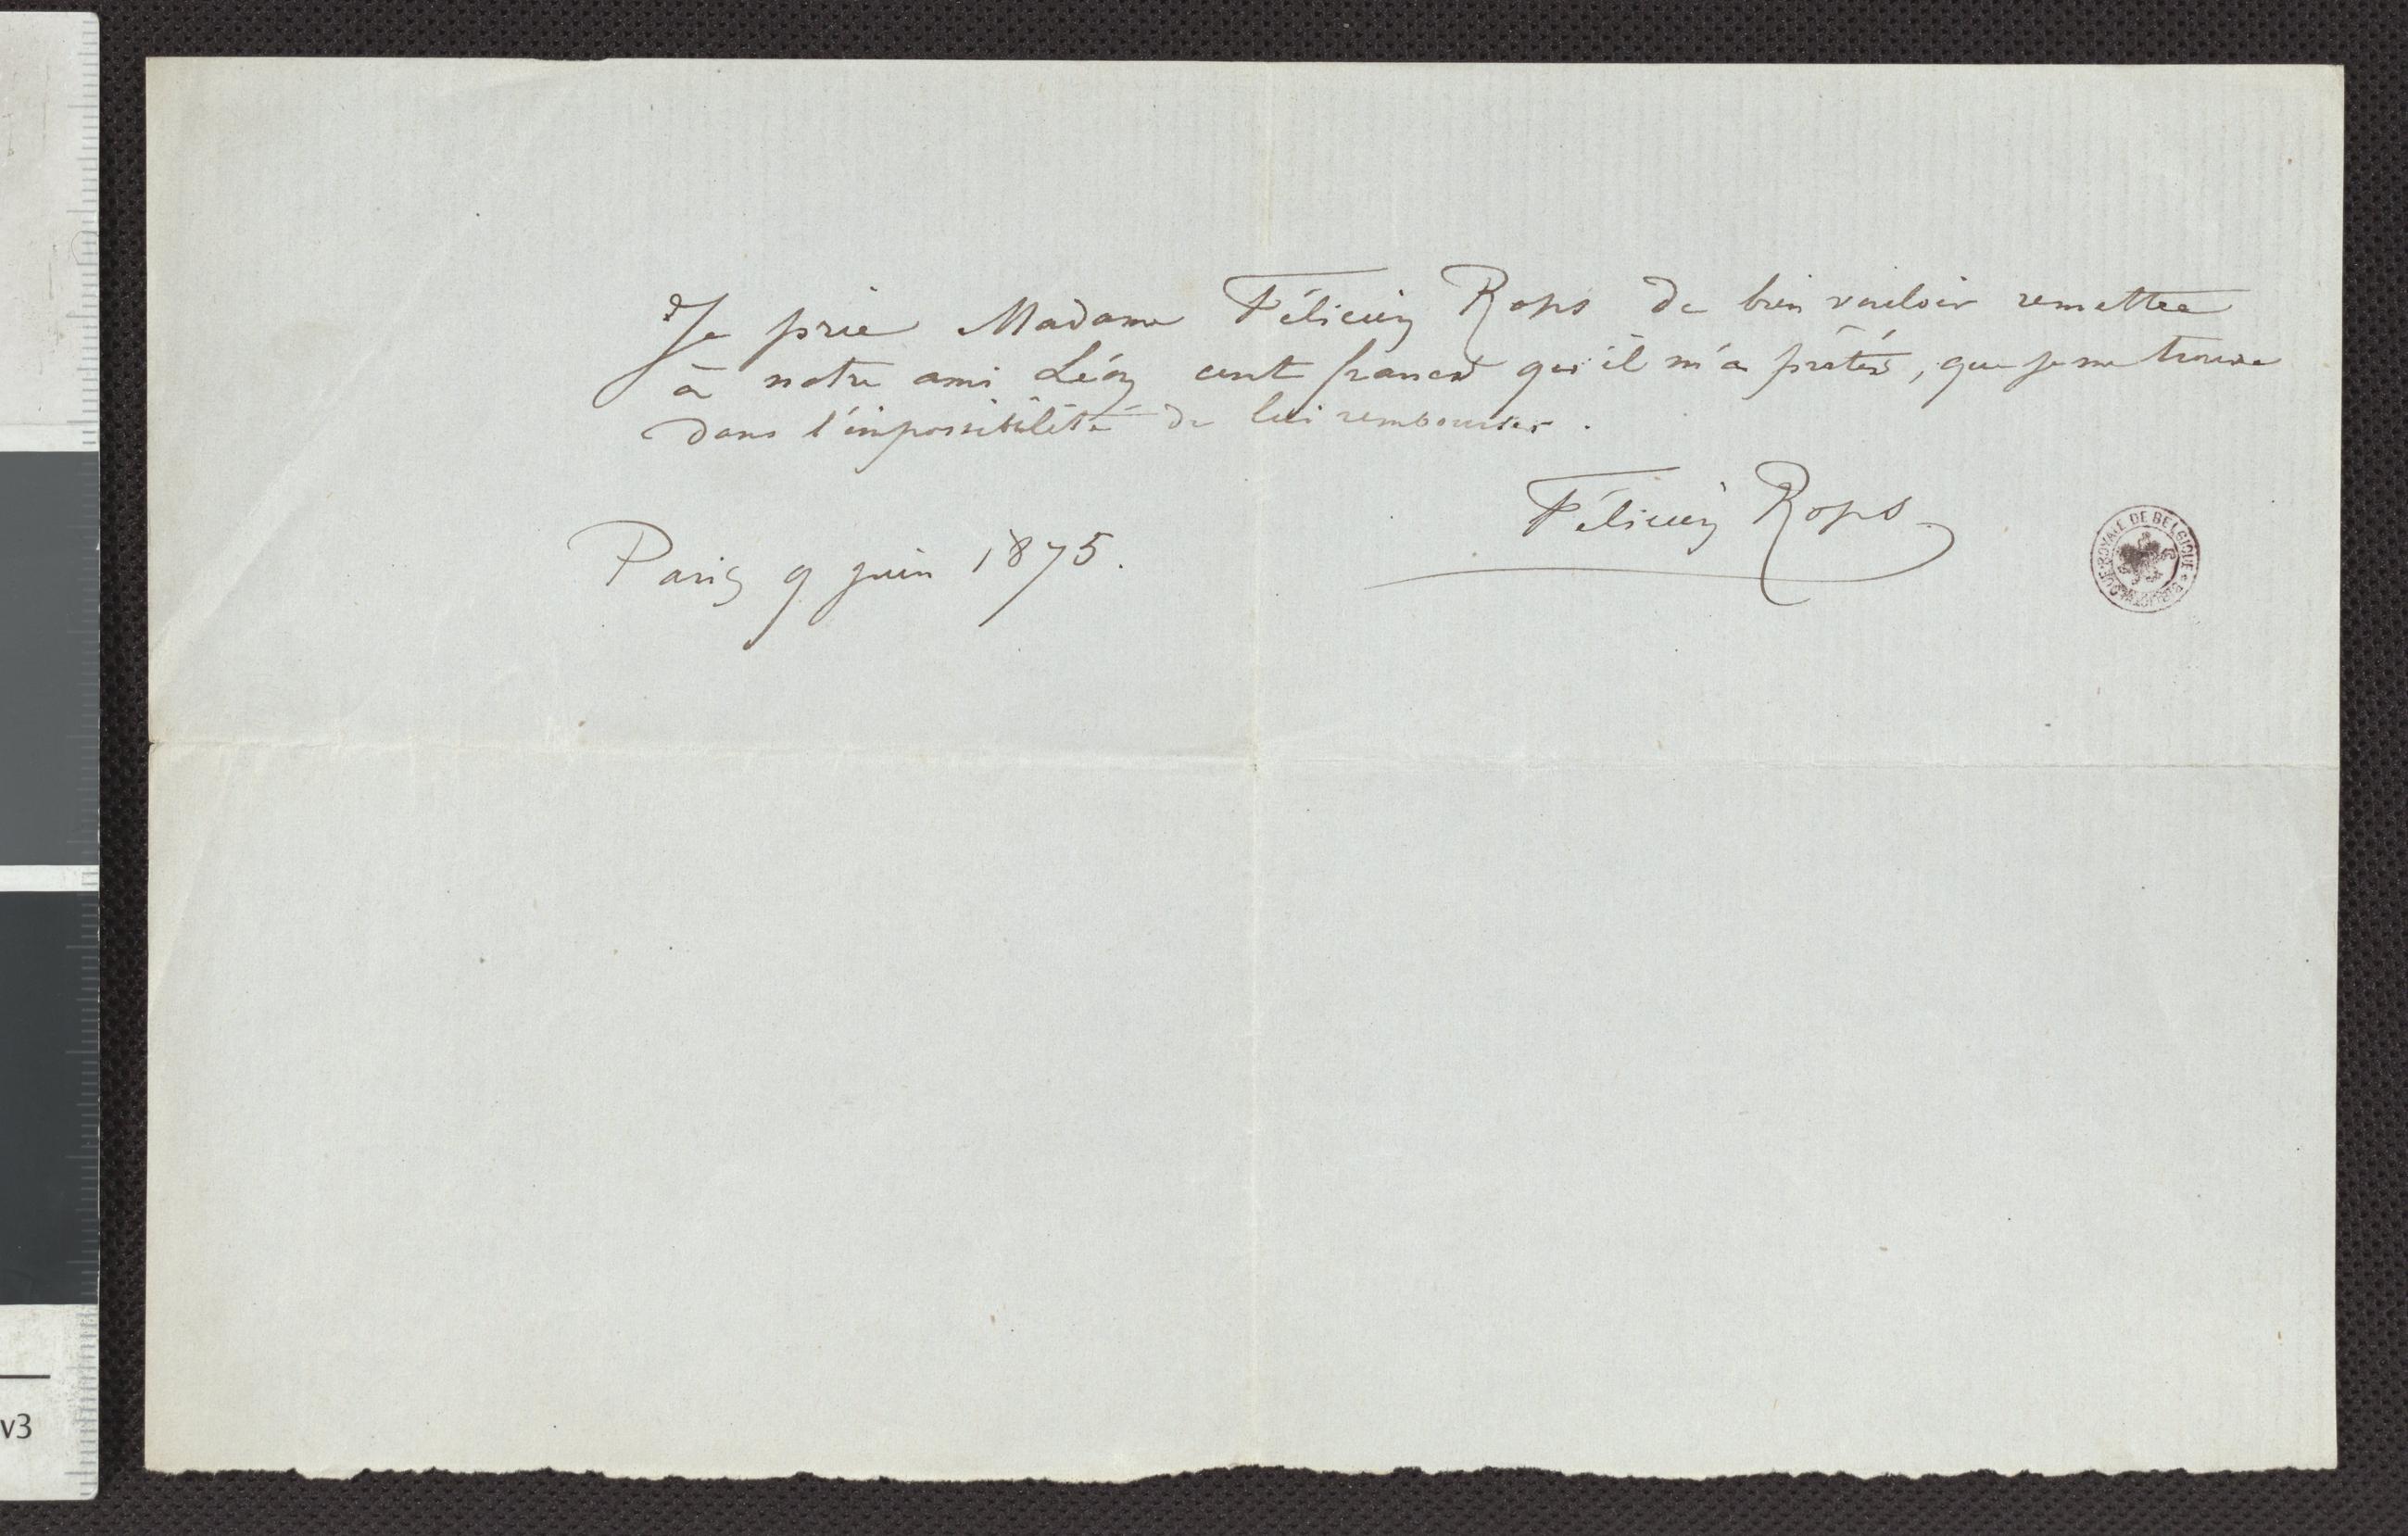 Je prie Madame Félicien Rops de bien vouloir remettre
à notre ami Léon cent francs qu'il m'a prêtés, que je me trouve
dans l'impossibilité de lui rembourser.
Félicien Rops
Paris 9 juin 1875.
BIBLIOTHÈQUE ROYALE DE BELGIQUE
v3